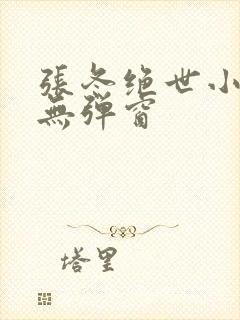 張冬绝世小
無弹窗
塔里